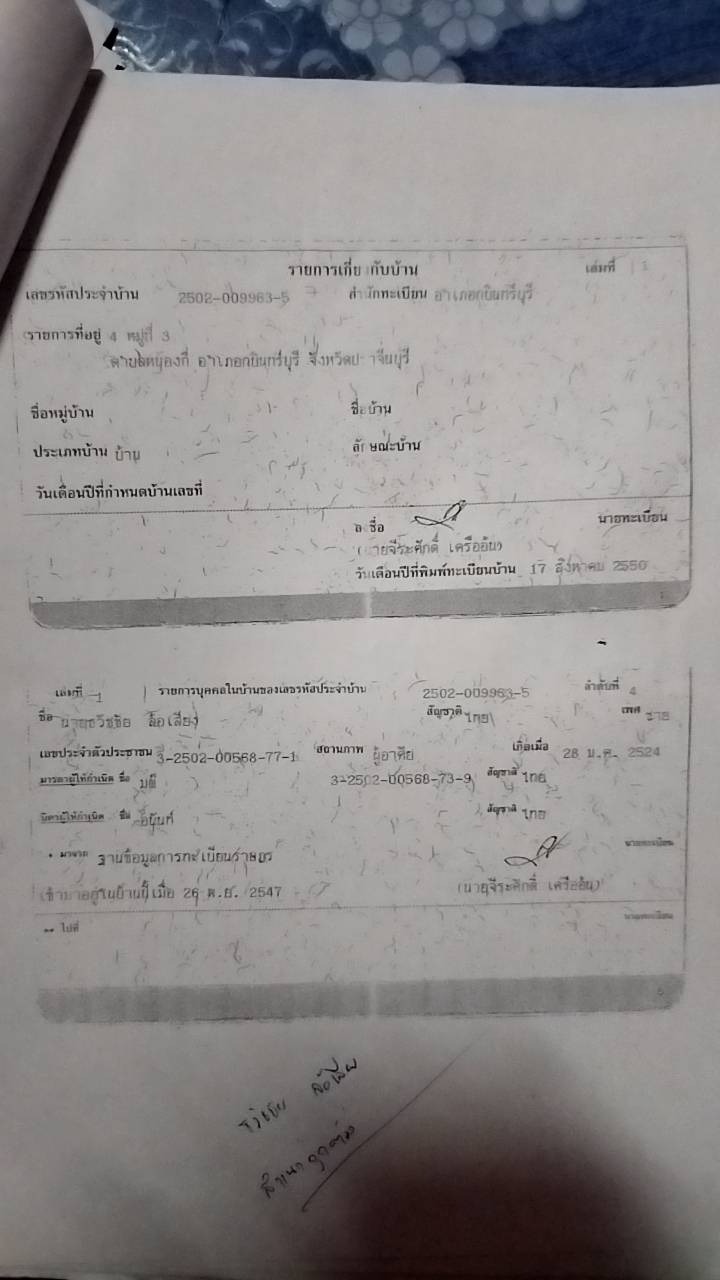 รายการเกี่ยวกับบ้าน เล่มที่ 1
เลขรหัสประจำบ้าน 2502-009963-5 สำนักทะเบียน อำเภอกบินทร์บุรี
รายการที่อยู่ 4 หมู่ที่ 3
ตำบลหนองกี่ อำเภอกบินทร์บุรี จังหวัดปราจีนบุรี
ชื่อหมู่บ้าน ชื่อบ้าน
ประเภทบ้าน บ้าน ลักษณะบ้าน
วันเดือนปีที่กำหนดบ้านเลขที่
ลงชื่อ นายทะเบียน
(นายจีระศักดิ์ เครืออ้น)
วันเดือนปีที่พิมพ์ทะเบียนบ้าน 17 สิงหาคม 2550
เล่มที่ 1 รายการบุคคลในบ้านของเลขรหัสประจำบ้าน 2502-009963-5 ลำดับที่ 4
ชื่อ นายธวัชชัย ล้อเสียง สัญชาติ ไทย เพศ ชาย
เลขประจำตัวประชาชน 3-2502-00568-77-1 สถานภาพ ผู้อาศัย เกิดเมื่อ 28 ม.ค. 2524
มารดาผู้ให้กำเนิด ชื่อ มลิ 3-2502-00568-73-9 สัญชาติ ไทย
บิดาผู้ให้กำเนิด ชื่อ อนันท์ สัญชาติ ไทย
* มาจาก ฐานข้อมูลการทะเบียนราษฎร นายทะเบียน
เข้ามาอยู่ในบ้านนี้เมื่อ 26 พ.ย. 2547 (นายจีระศักดิ์ เครืออ้น)
** ไปที่ นายทะเบียน
สำเนาถูกต้อง